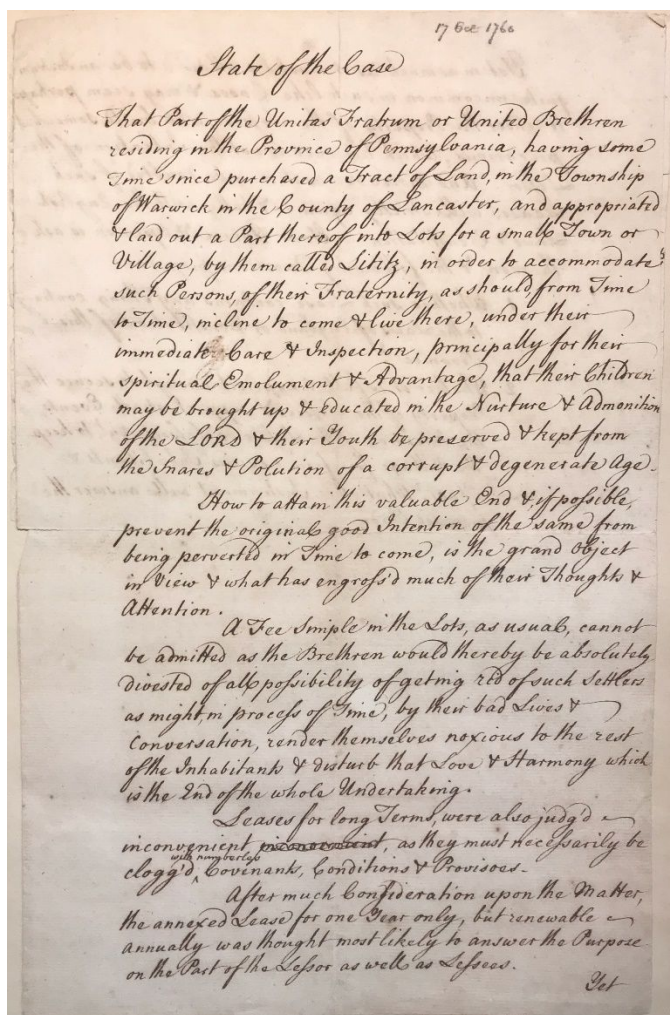 17 Oct 1760
State of the Case
That Part of the Unitas Fratrum or United Brethren
residing in the Province of Pennsylvania, having some
Time since purchased a Tract of Land, in the Township
of Warwick in the County of Lancaster, and appropriated
& laid out a Part thereof into Lots for a small Town or
Village, by them called Lititz, in order to accommodate
such Persons, of their Fraternity, as should, from Time
to Time, incline to come & live there, under their
immediate Care & Inspection, principally for their
spiritual Emolument & Advantage, that their Children
may be brought up & Educated in the Nurture & Admonition
of the LORD & their Youth be preserved & kept from
the Snares & Polution of a corrupt & degenerate Age.
How to attain this valuable End & if possible,
prevent the original good Intention of the same from
being perverted in Time to come, is the grand Object
in View & what has engross'd much of their Thoughts &
Attention.
A Fee Simple in the Lots, as usual, cannot
be admitted as the Brethren would thereby be absolutely
divested of all possibility of geting rid of such Settlers
as might in process of Time, by their bad Lives &
Conversation, render themselves noxious to the rest
of the Inhabitants & disturb that Love & Harmony which
is the End of the whole Undertaking.
Leases for long Terms, were also judg'd
inconvenient, as they must necessarily be
clogg'd with numberless Covinants, Conditions & Provisoes.
After much Consideration upon the Matter,
the annexed Lease for one Year only, but renewable
annually was thought most likely to answer the Purpose
on the Part of the Lessor as well as Lessees.
Yet